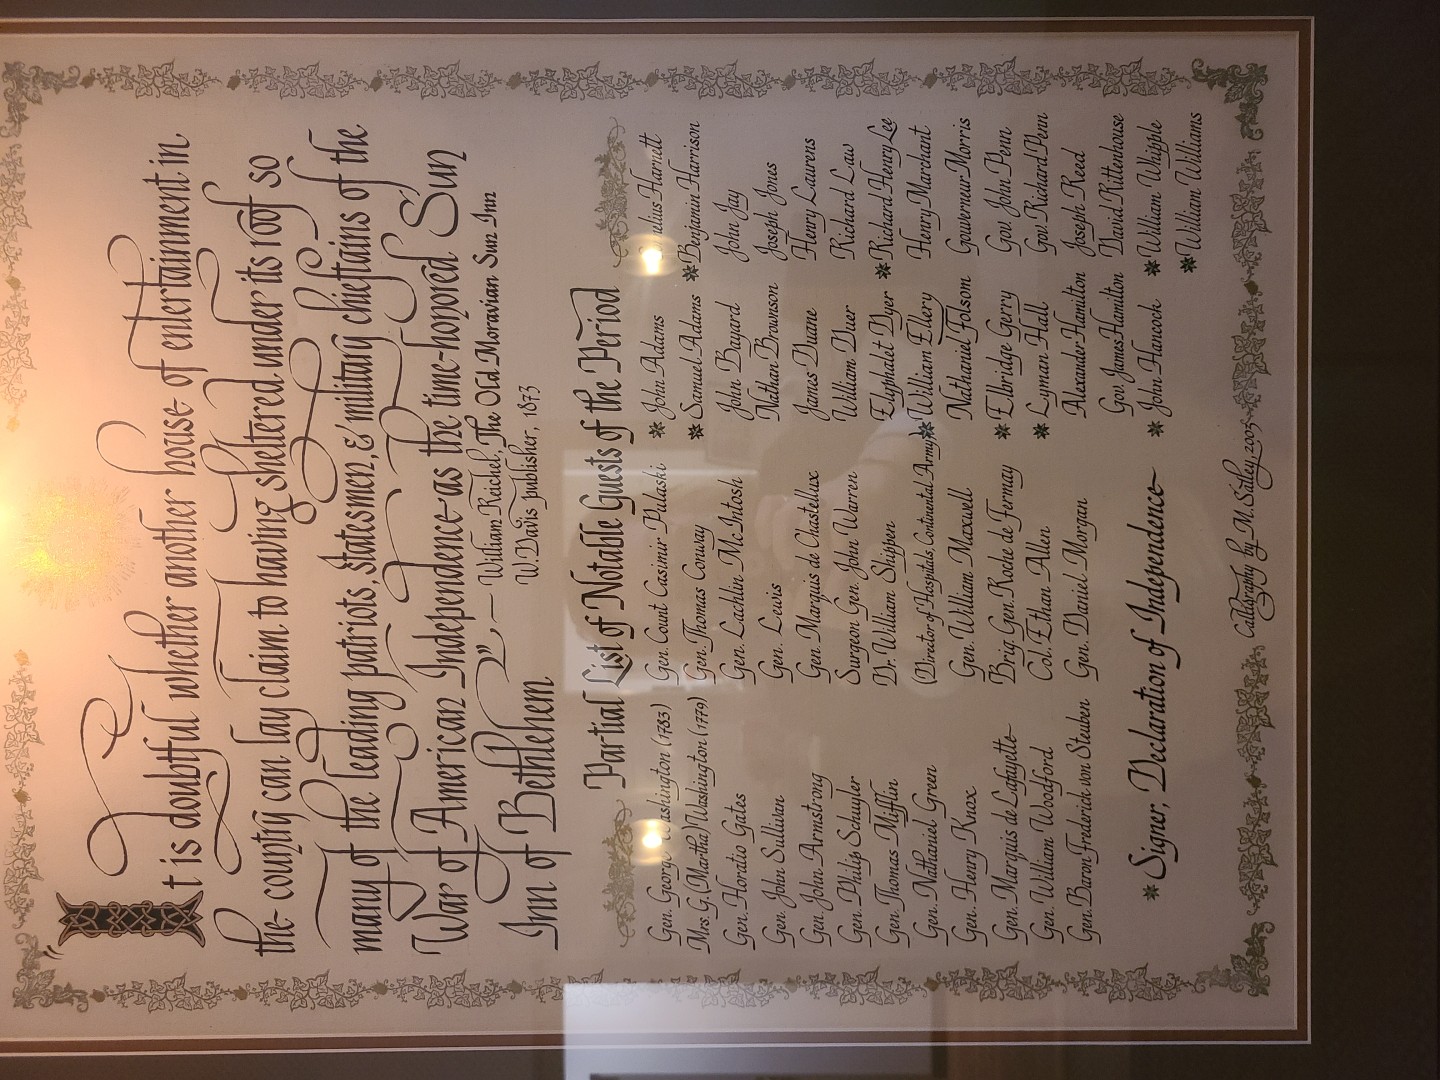 "It is doubtful whether another house of entertainment in
the country can lay claim to having sheltered under its roof so
many of the leading patriots, statesmen, & military chieftains of the
War of American Independence as the time-honored Sun
Inn of Bethlehem
", — William Reichel, The Old Moravian Sun Inn
W. Davis publisher, 1873
Partial List of Notable Guests of the Period
Gen. George Washington (1783)
Mrs. G. (Martha) Washington (1779)
Gen. Horatio Gates
Gen. John Sullivan
Gen. John Armstrong
Gen. Philip Schuyler
Gen. Thomas Mifflin
Gen. Nathaniel Green
Gen. Henry Knox
Gen. Marquis de Lafayette
Gen. William Woodford
Gen. Baron Frederick von Steuben
Gen. Count Casimir Pulaski
Gen. Thomas Conway
Gen. Lachlin McIntosh
Gen. Lewis
Gen. Marquis de Chastellux
Surgeon Gen. John Warren
Dr. William Shippen
(Director of Hospitals, Continental Army)
Gen. William Maxwell
Brig. Gen. Roche de Fermay
Col. Ethan Allen
Gen. Daniel Morgan
* John Adams
* Samuel Adams
John Bayard
Nathan Brownson
James Duane
William Duer
Elyphalet Dyer
* William Ellery
Nathaniel Folsom
* Elbridge Gerry
* Lyman Hall
Alexander Hamilton
Gov. James Hamilton
* John Hancock
Cornelius Harnett
* Benjamin Harrison
John Jay
Joseph Jones
Henry Laurens
Richard Law
* Richard Henry Lee
Henry Marchant
Gouverneur Morris
Gov. John Penn
Gov. Richard Penn
Joseph Reed
David Rittenhouse
* William Whipple
* William Williams
* Signer, Declaration of Independence
Calligraphy by M. Sitley, 2003